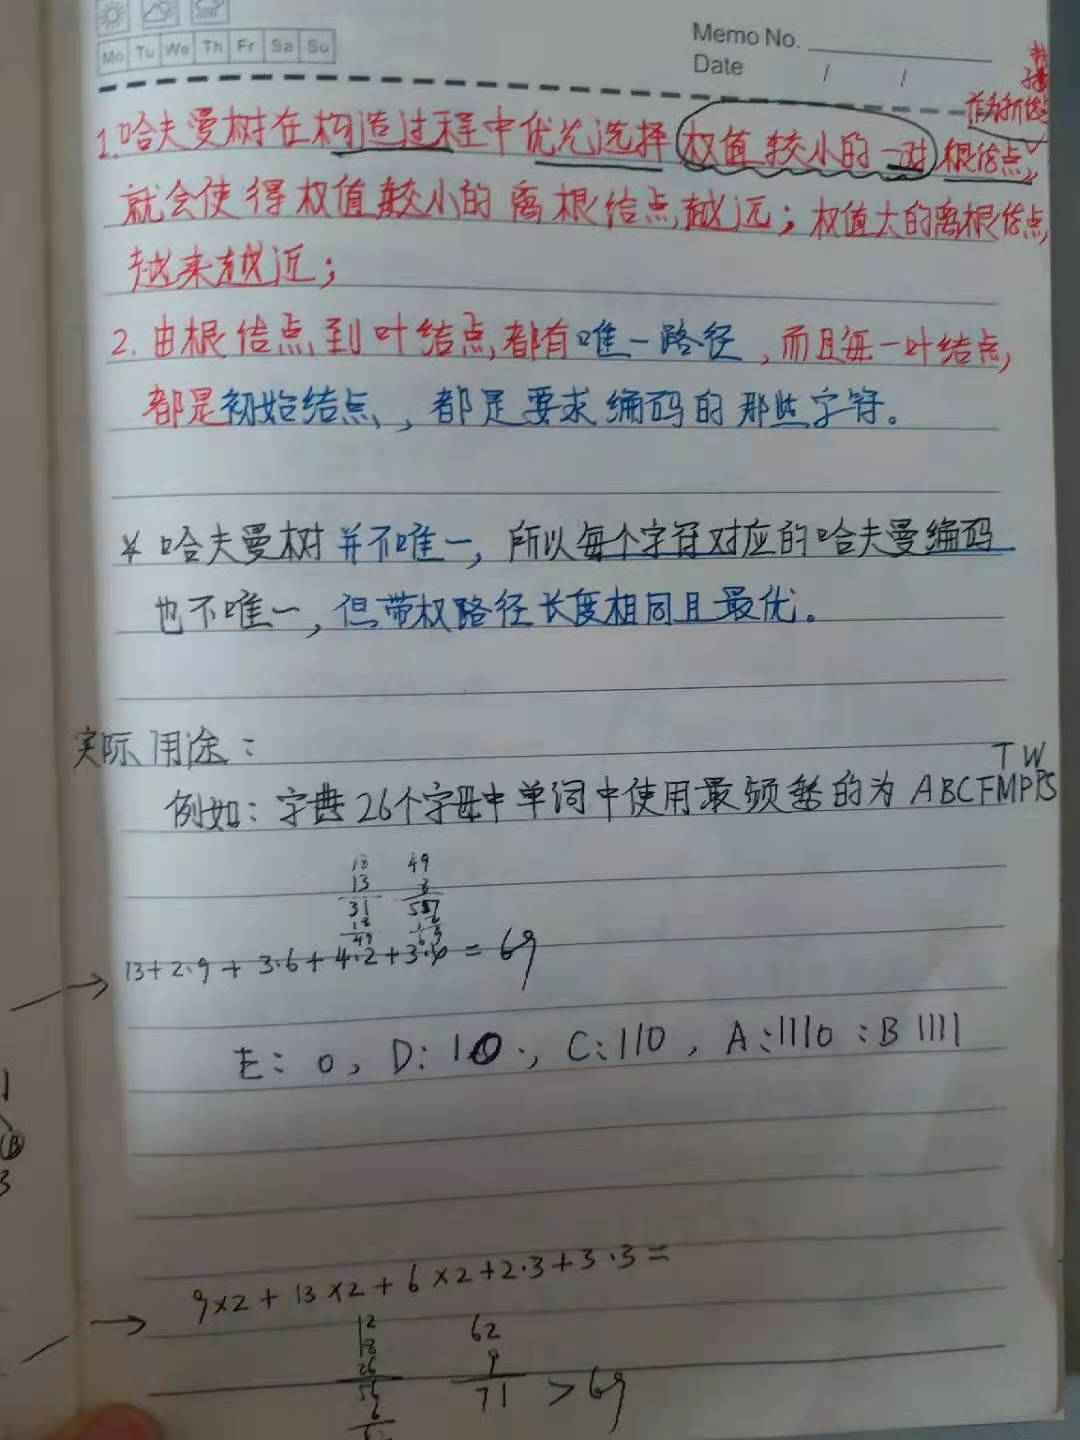 Mo Tu We Th Fr Sa Su
Memo No.
Date / /
作为新结点
1.哈夫曼树在构造过程中优先选择权值较小的一对根结点,
就会使得权值较小的离根结点越远；权值大的离根结点
越来越近；
2.由根结点到叶结点,都有唯一路径，而且每一叶结点,
都是初始结点，都是要求编码的那些字符。
* 哈夫曼树并不唯一，所以每个字符对应的哈夫曼编码
也不唯一，但带权路径长度相同且最优。
实际用途：
T W
例如：字典26个字母中单词中使用最频繁的为 ABCFMPRS
18 49
13 8
31 57
18 12
49 69
13+2·9+3·6+4·2+3·4=69
E：0，D：10，C：110，A：1110：B 1111
1
B
3
9×2+13×2+6×2+2·3+3·3=
12
18 62
26 9
56 71 > 69
6